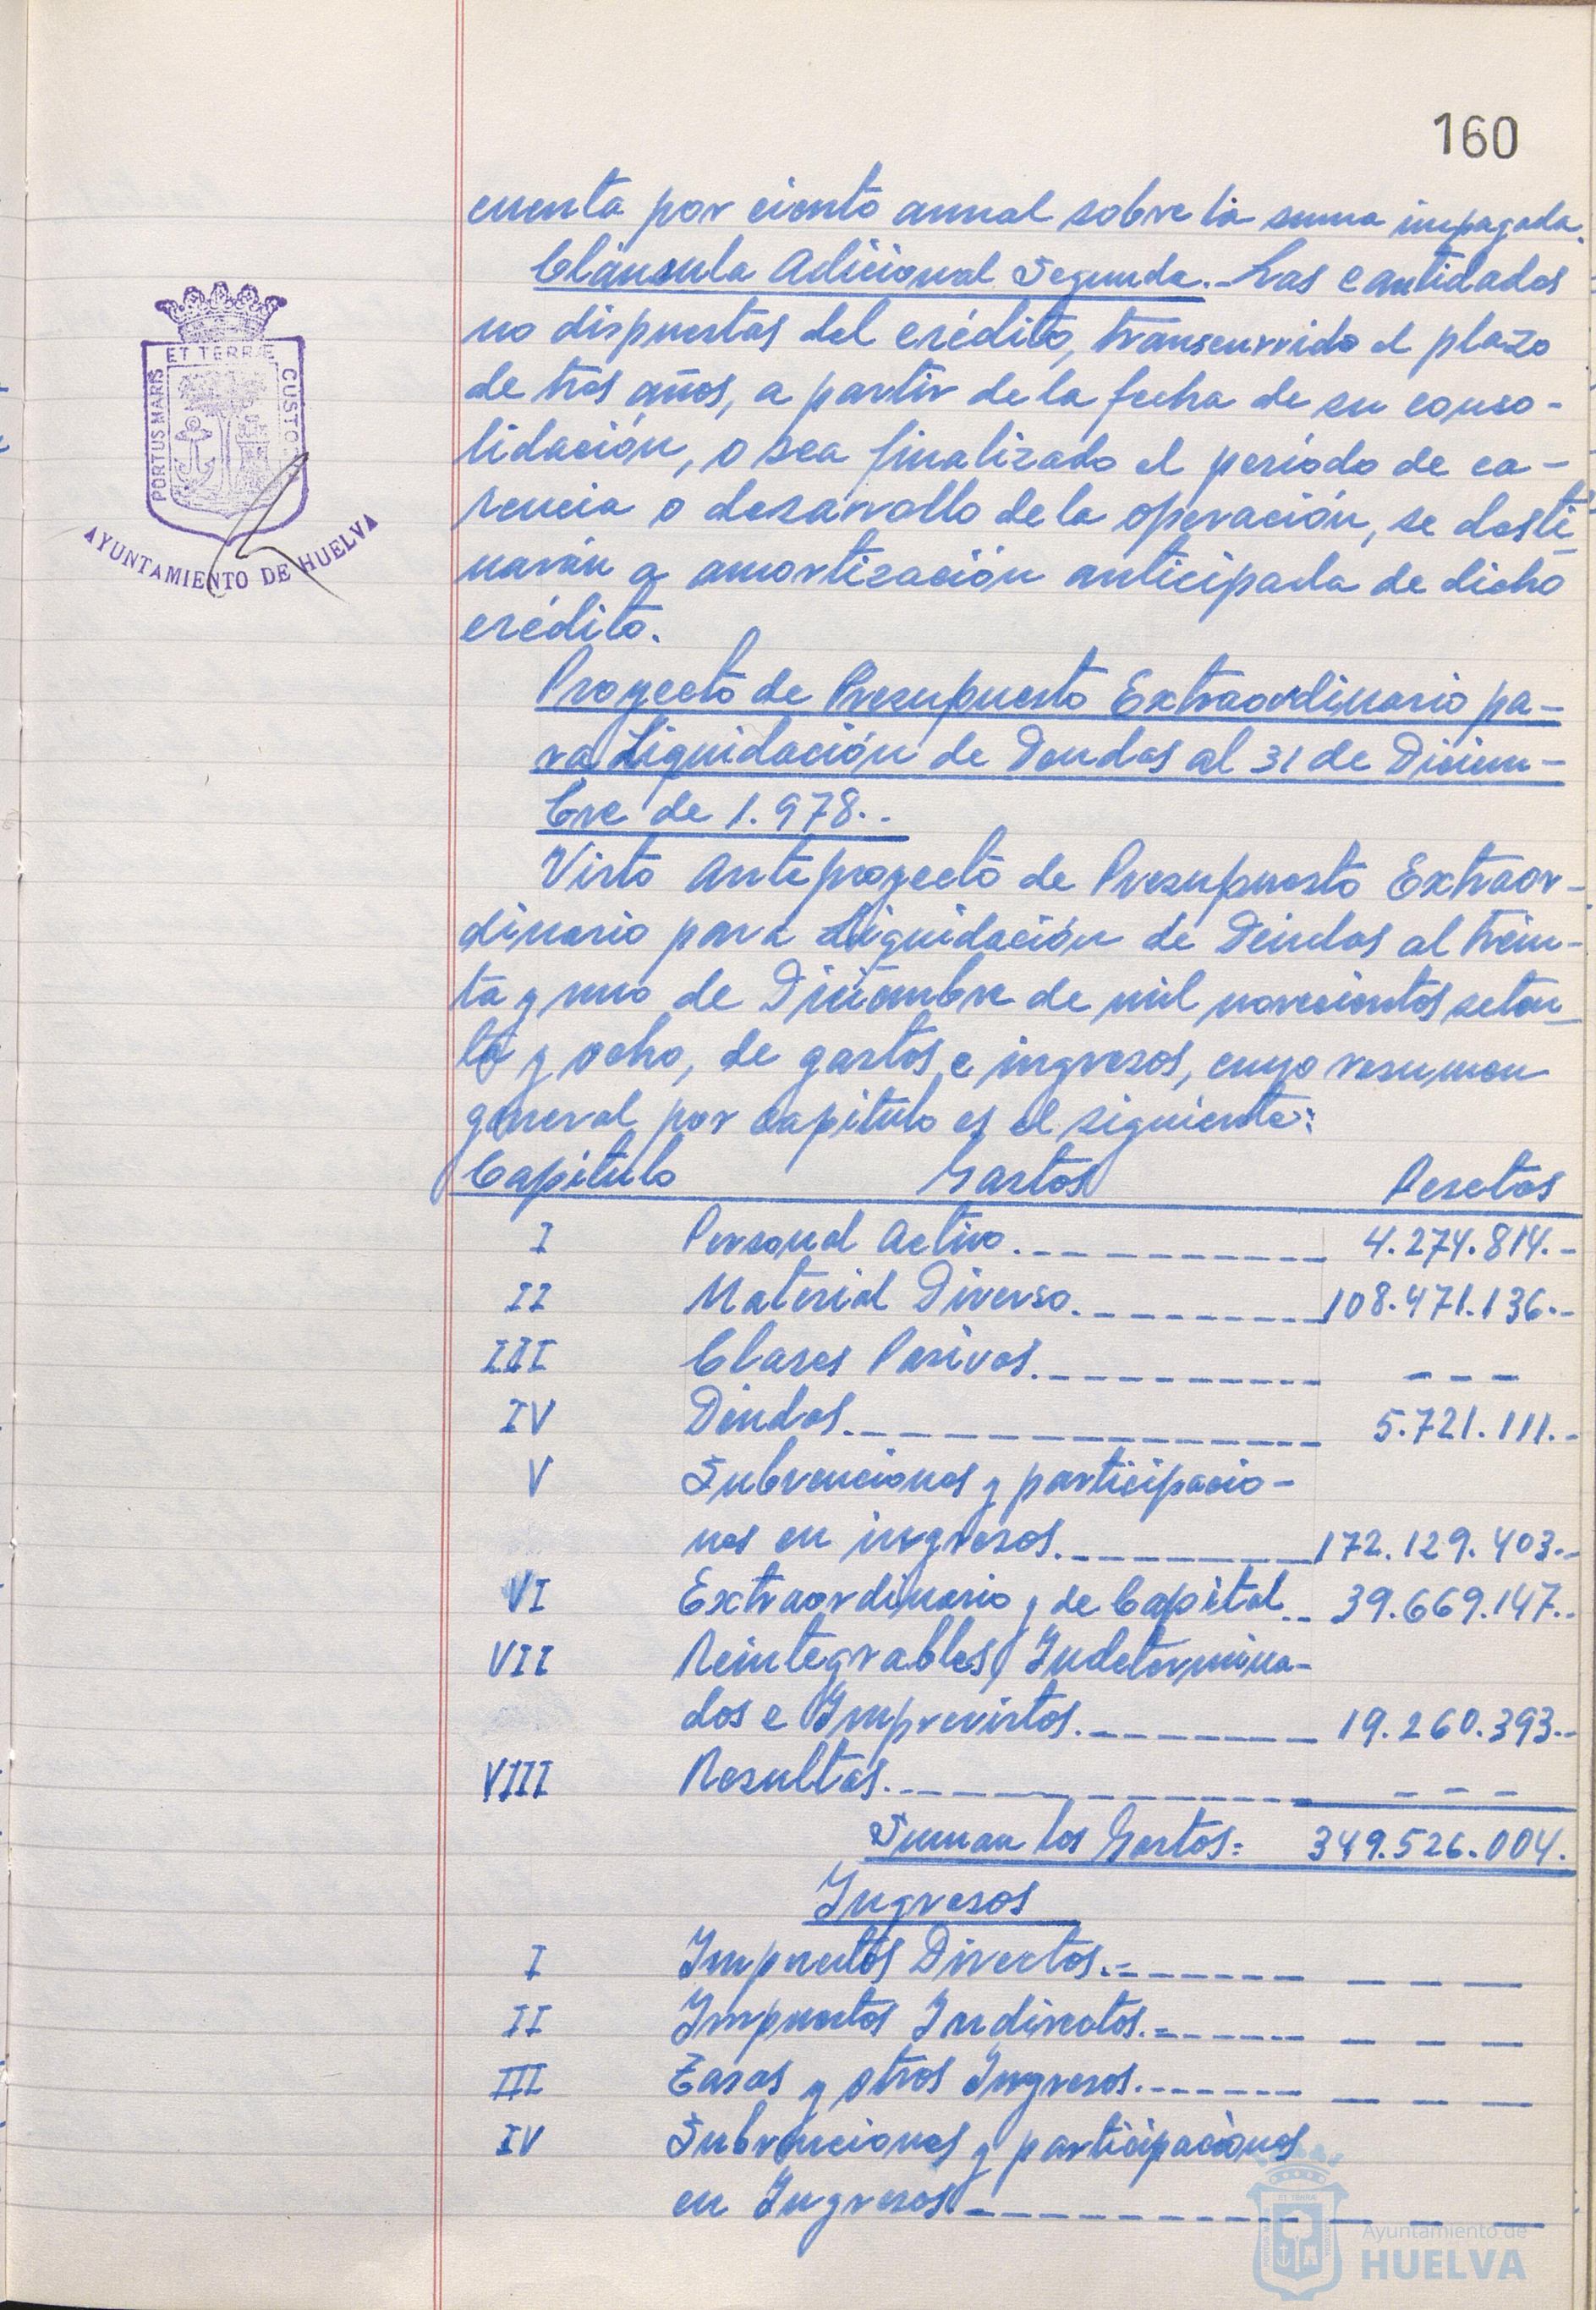 160
cuenta por ciento annal sobre la suma impagada.
Cláusula Adicional Segunda.- Las cantidades
no dispuestas del crédito, transcurrido el plazo
de tres años, a partir de la fecha de su conso-
lidación, o sea finalizado el período de ca-
rencia o desarrollo de la operación, se desti-
narán a amortización anticipada de dicho
crédito.
Proyecto de Presupuesto Extraordinario pa-
ra Liquidación de Deudas al 31 de Diciem-
bre de 1.978.-
Visto Anteproyecto de Presupuesto Extraor-
dinario para Liquidación de Deudas al trein-
ta y uno de Diciembre de mil novecientos seten-
ta y ocho, de gastos e ingresos, cuyo resumen
general por capitulo es el siguiente:
Capitulo Gastos Pesetas
I Personal Activo. 4.274.814.-
II Material Diverso. 108.471.136.-
III Clases Pasivas. - - -
IV Deudas. 5.721.111.-
V Subvenciones y participacio-
nes en ingresos. 172.129.403.-
VI Extraordinario y de Capital 39.669.147.-
VII Reintegrables, Indetermina-
dos e Imprevistos. 19.260.393.-
VIII Resultas. - - -
Suman los Gastos= 349.526.004.
Ingresos
I Impuestos Directos.- - - -
II Impuestos Indirectos.- - - -
III Tasas y otros Ingresos. - - -
IV Subvenciones y participaciones
en Ingresos - - -
PORTUS MARIS ET TERRÆ CUSTO
AYUNTAMIENTO DE HUELVA
Ayuntamiento de
HUELVA